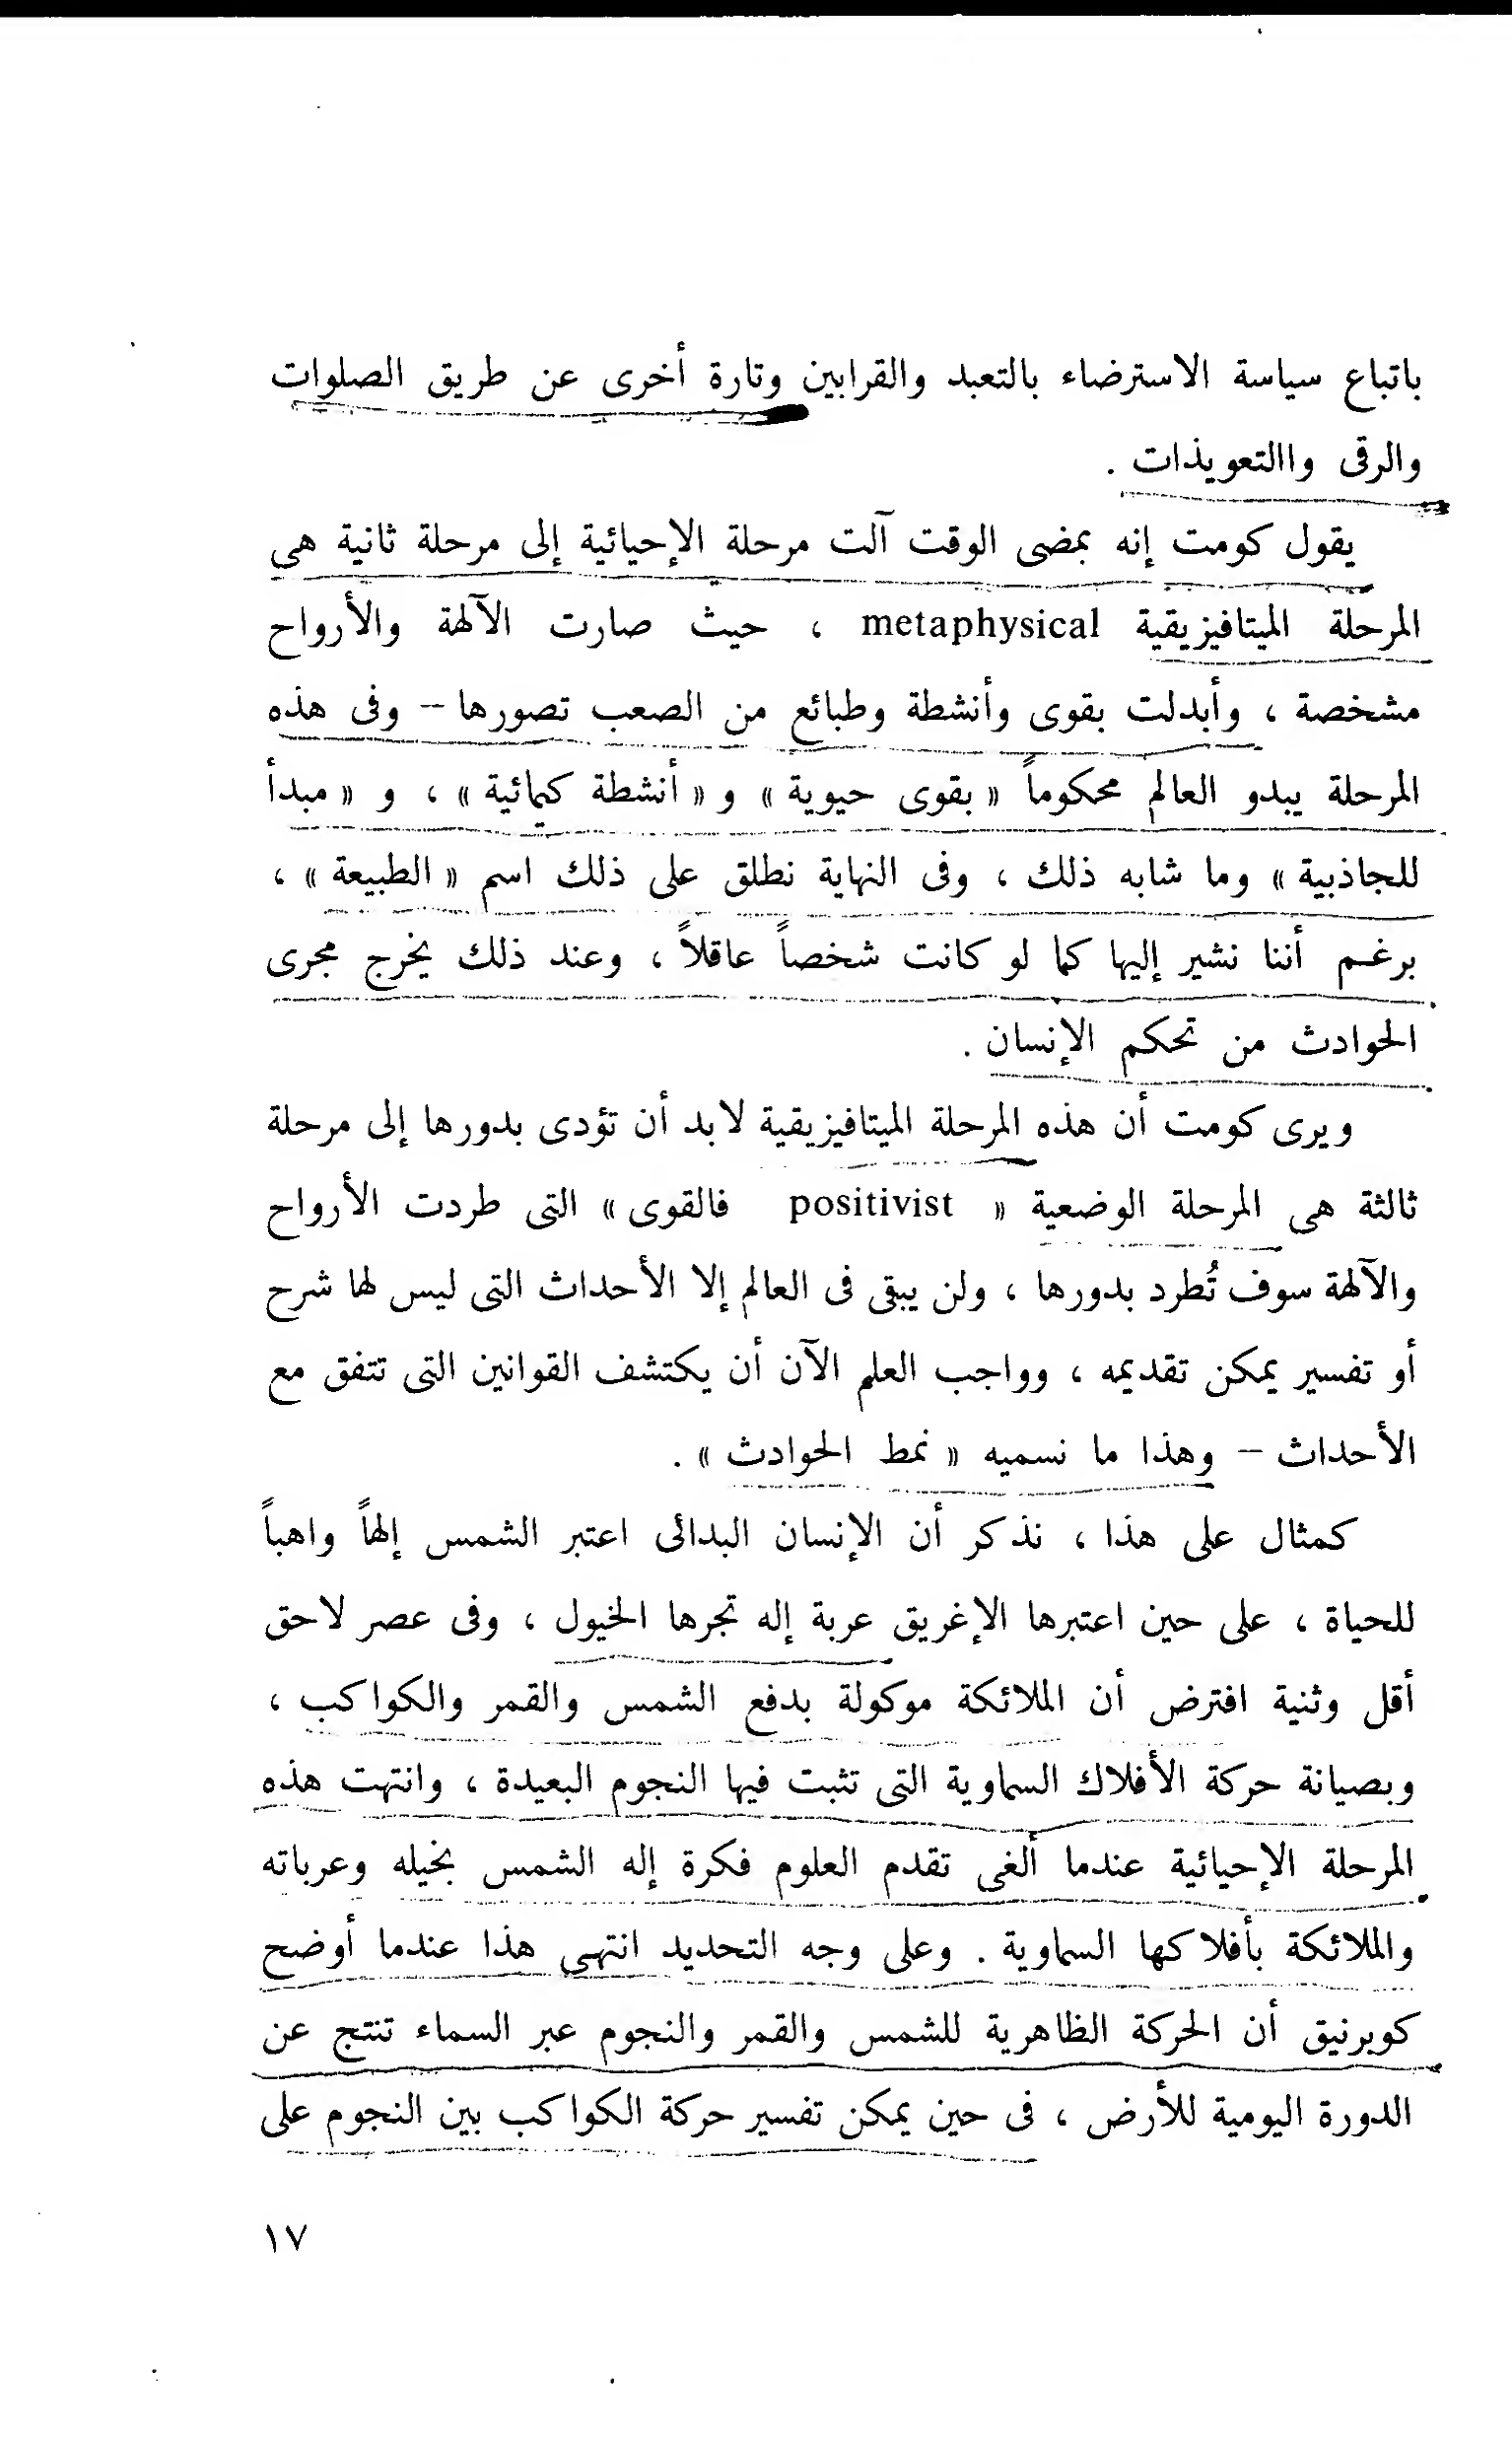 باتباع سياسة الاسترضاء بالتعبد والقرابين وتارة أخرى عن طريق الصلوات
والرقى واالتعويذات .
يقول كومت إنه بمضى الوقت آلت مرحلة الإحيائية إلى مرحلة ثانية هى
المرحلة الميتافيزيقية metaphysical ، حيث صارت الآلهة والأرواح
مشخصة ، وأبدلت بقوى وأنشطة وطبائع من الصعب تصورها – وفى هذه
المرحلة يبدو العالم محكوماً « بقوى حيوية » و « أنشطة كيمائية » ، و « مبدأ
للجاذبية » وما شابه ذلك ، وفى النهاية نطلق على ذلك اسم « الطبيعة » ،
برغم أننا نشير إليها كما لو كانت شخصاً عاقلاً ، وعند ذلك يخرج مجرى
الحوادث من تحكم الإنسان .
ويرى كومت أن هذه المرحلة الميتافيزيقية لابد أن تؤدى بدورها إلى مرحلة
ثالثة هى المرحلة الوضعية « positivist فالقوى » التى طردت الأرواح
والآلهة سوف تُطرد بدورها ، ولن يبقى فى العالم إلا الأحداث التى ليس لها شرح
أو تفسير يمكن تقديمه ، وواجب العلم الآن أن يكتشف القوانين التى تتفق مع
الأحداث – وهذا ما نسميه « نمط الحوادث » .
كمثال على هذا ، نذكر أن الإنسان البدائى اعتبر الشمس إلهاً واهباً
للحياة ، على حين اعتبرها الإغريق عربة إله تجرها الخيول ، وفى عصر لاحق
أقل وثنية افترض أن الملائكة موكولة بدفع الشمس والقمر والكواكب ،
وبصيانة حركة الأفلاك السماوية التى تثبت فيها النجوم البعيدة ، وانتهت هذه
المرحلة الإحيائية عندما ألغى تقدم العلوم فكرة إله الشمس بخيله وعرباته
والملائكة بأفلاكها السماوية . وعلى وجه التحديد انتهى هذا عندما أوضح
كوبرنيق أن الحركة الظاهرية للشمس والقمر والنجوم عبر السماء تنتج عن
الدورة اليومية للأرض ، فى حين يمكن تفسير حركة الكواكب بين النجوم على
١٧